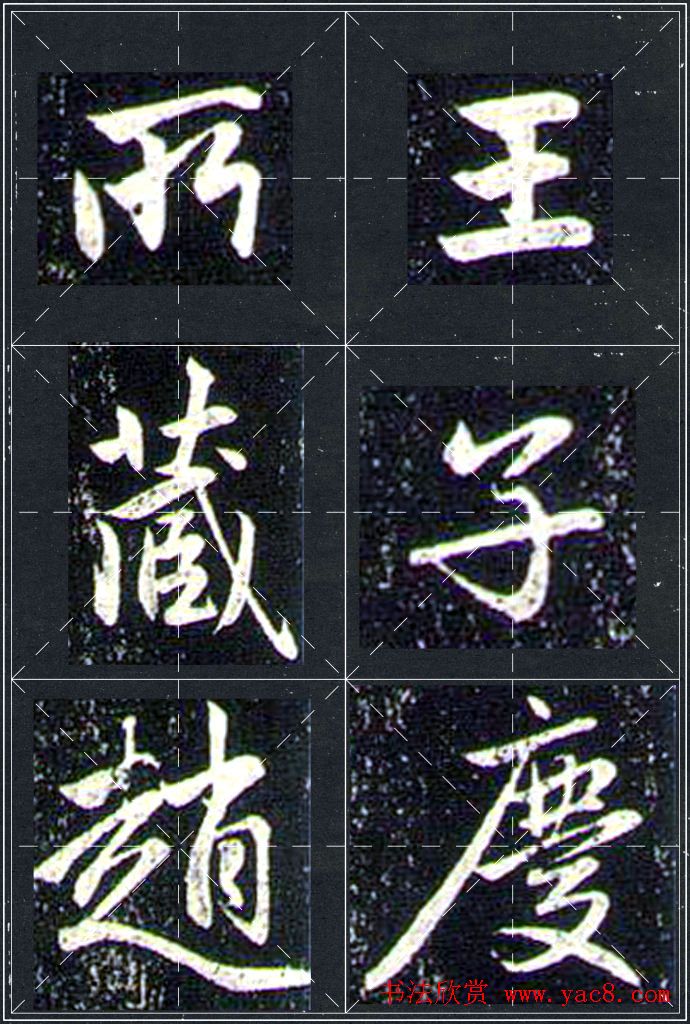 王子慶
所藏趙
书法欣赏 www.yac8.com